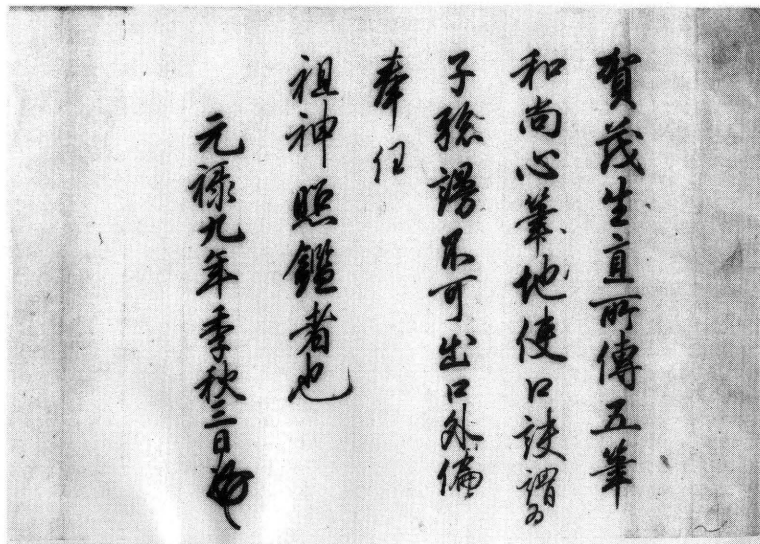 賀茂生直所傳五筆
和尚心筆地使口訣謂為
子孫謾不可出口外偏
奉任
祖神照鑑者也
元禄九年季秋三日